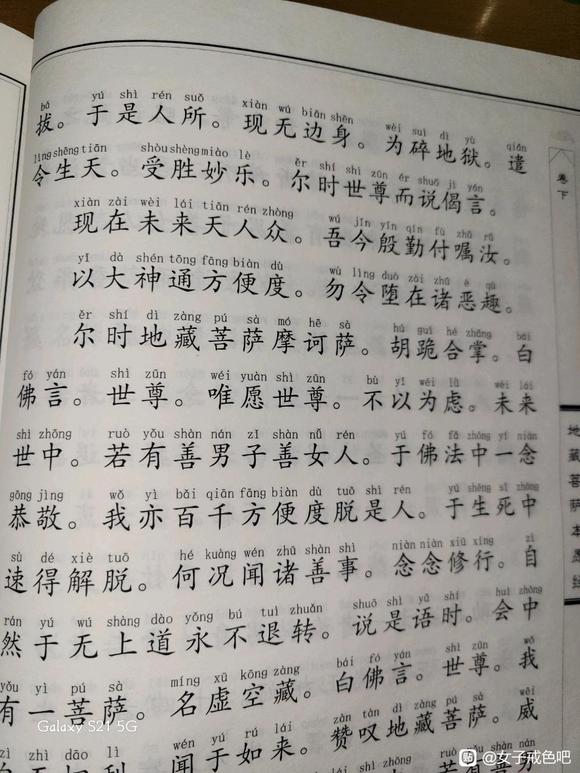 bá yú shì rén suǒ xiàn wú biān shēn wèi suì dì yù qiǎn
拔。于是人所。现无边身。为碎地狱。遣
lìng shēng tiān shòu shèng miào lè ěr shí shì zūn ér shuō jì yán
令生天。受胜妙乐。尔时世尊而说偈言。
xiàn zài wèi lái tiān rén zhòng wú jīn yīn qín fù zhǔ rǔ
现在未来天人众。吾今殷勤付嘱汝。
yǐ dà shén tōng fāng biàn dù wù lìng duò zài zhū è qù
以大神通方便度。勿令堕在诸恶趣。
ěr shí dì zàng pú sà mó hē sà hú guì hé zhǎng bái
尔时地藏菩萨摩诃萨。胡跪合掌。白
fó yán shì zūn wéi yuàn shì zūn bù yǐ wéi lǜ wèi lái
佛言。世尊。唯愿世尊。不以为虑。未来
shì zhōng ruò yǒu shàn nán zǐ shàn nǚ rén yú fó fǎ zhōng yí niàn
世中。若有善男子善女人。于佛法中一念
gōng jìng wǒ yì bǎi qiān fāng biàn dù tuō shì rén yú shēng sǐ zhōng
恭敬。我亦百千方便度脱是人。于生死中
sù dé xiè tuō hé kuàng wén zhū shàn shì niàn niàn xiū xíng zì
速得解脱。何况闻诸善事。念念修行。自
rán yú wú shàng dào yǒng bú tuì zhuǎn shuō shì yǔ shí huì zhōng
然于无上道永不退转。说是语时。会中
yǒu yì pú sà míng xū kōng zàng bái fó yán shì zūn wǒ
有一菩萨。名虚空藏。白佛言。世尊。我
zhì dāo lì wén yú rú lái zàn tàn dì zàng pú sà wēi
闻于如来。赞叹地藏菩萨。威
卷下
地藏菩萨本愿经
Galaxy S21 5G
贴 @女子戒色吧